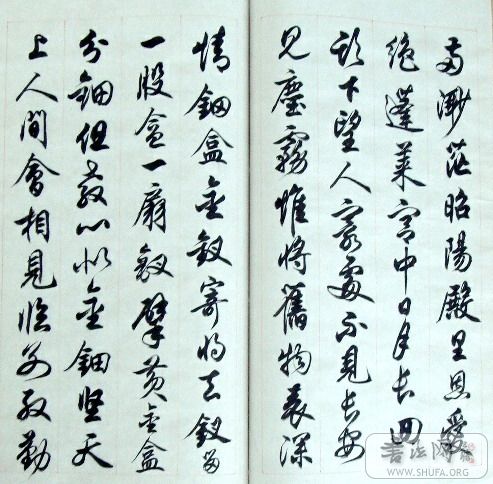 兩渺茫昭陽殿里恩愛
絕蓬萊宮中日月長回
頭下望人寰處不見長安
見塵霧惟將舊物表深
情鈿盒金釵寄將去釵留
一股盒一扇釵擘黃金盒
分鈿但教心似金鈿堅天
上人間會相見臨別殷勤
書法网
WWW.SHUFA.ORG